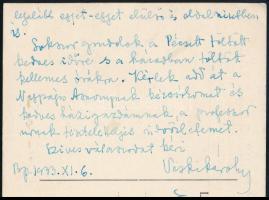 legalább egyet-egyet elülső és oldalnézetben
is.
Sokszor gondolok a Pécsett töltött
kedves időre s a házadban töltött
kellemes órákra. Kérlek add át a
Nagyságos Asszonynak kézcsókomat és
kedves házigazdámnak, a professzor
úrnak tiszteletteljes üdvözletemet.
Szives válaszodat kéri
Bp. 1933. XI. 6.